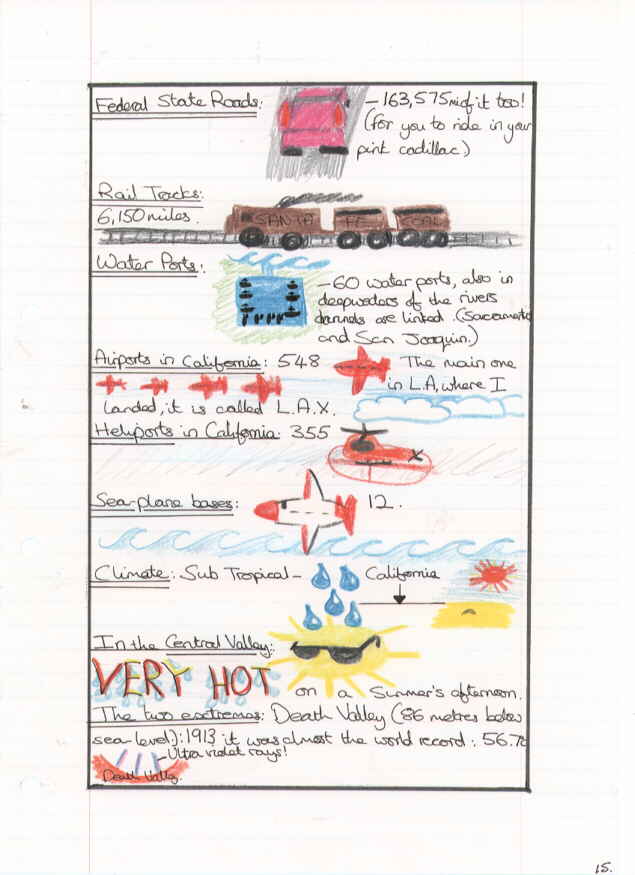 Federal State Roads:
- 163,575 mi of it too!
(for you to ride in your
pink cadillac)
Rail Tracks:
6,150 miles.
SANTA FE COAL
Water Ports:
- 60 water ports, also in
deepwaters of the rivers
channels are linked. (Sacramento
and San Joaquin.)
Airports in California: 548 The main one
in L.A, where I
landed, it is called L.A.X.
Heliports in California: 355
Sea-plane bases: 12.
Climate: Sub Tropical - California
In the Central Valley:
VERY HOT on a Summer's afternoon.
The two exextremes: Death Valley (86 metres below
sea-level): 1913 it was almost the world record: 56.7c
- Ultra violet rays!
Death Valley.
15.